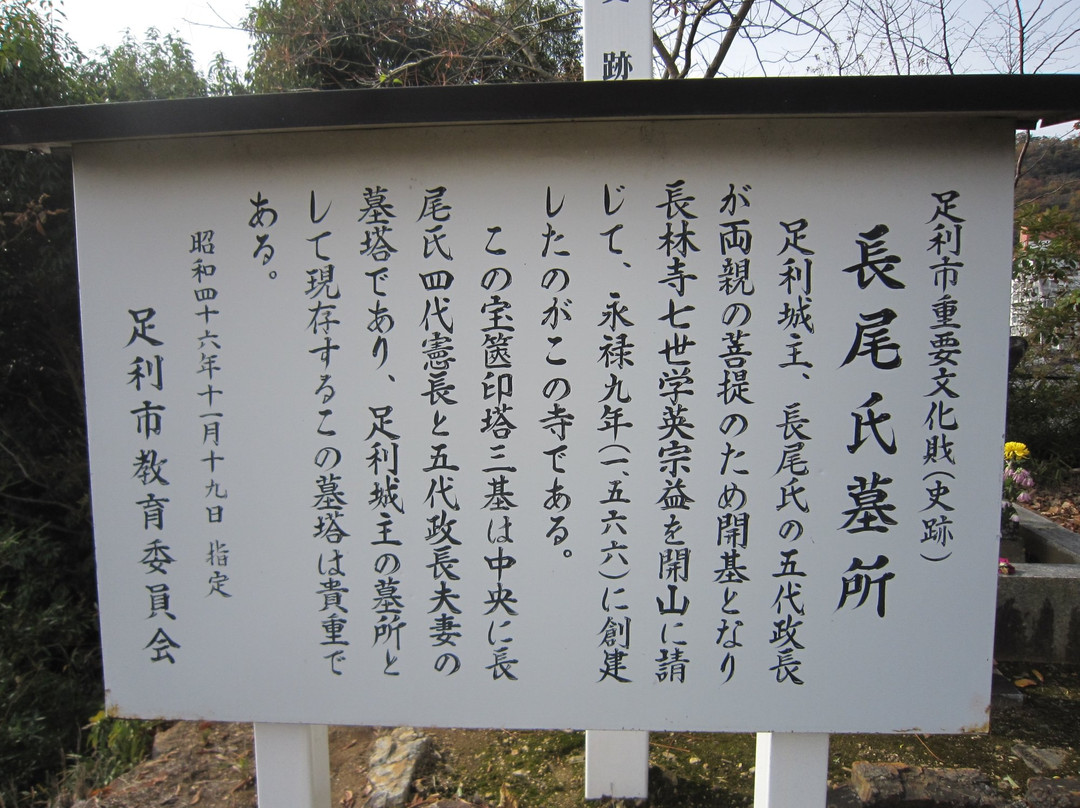 跡
足利市重要文化戝(史跡)
長尾氏墓所
足利城主、長尾氏の五代政長
が両親の菩提のため開基となり
長林寺七世学英宗益を開山に請
じて、永禄九年(一、五六六)に創建
したのがこの寺である。
この宝篋印塔三基は中央に長
尾氏四代憲長と五代政長夫妻の
墓塔であり、足利城主の墓所と
して現存するこの墓塔は貴重で
ある。
昭和四十六年十一月十九日 指定
足利市教育委員会